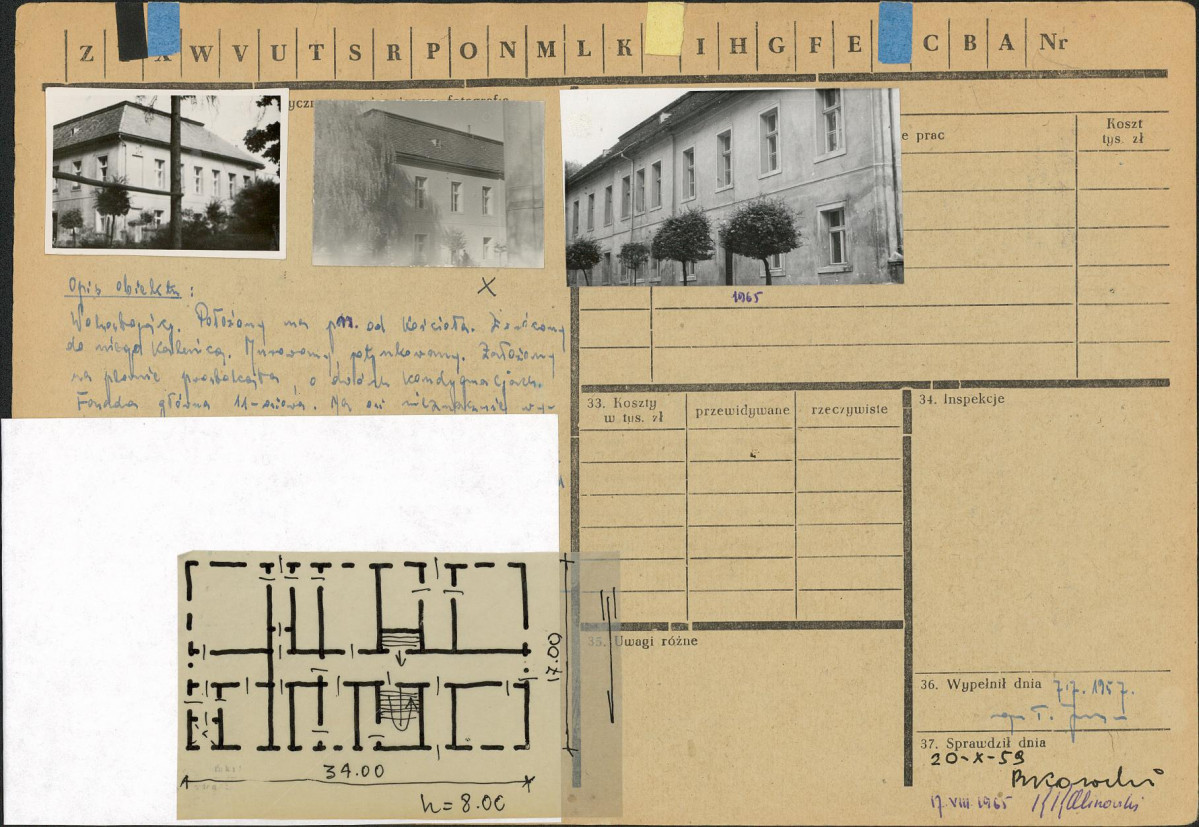 Z X W V U T S R P O N M L K I H G F E C B A Nr
fotografie
e prac
Koszt
tys. zł
1965
Opis obiektu:
Wolnostojący. Położony na płn. od kościoła. Zwrócony
do niego kalenicą. Murowany, otynkowany. Założony
na planie prostokąta, o dwóch kondygnacjach.
Fasada główna 11-osiowa. Na osi nieznacznie wy-
33. Koszty
w tys. zł
przewidywane
rzeczywiste
34. Inspekcje
35. Uwagi różne
17.00
34.00
h = 8.00
36. Wypełnił dnia 7.7.1957.
mgr T.
37. Sprawdził dnia
20-X-59
17.VIII 1965